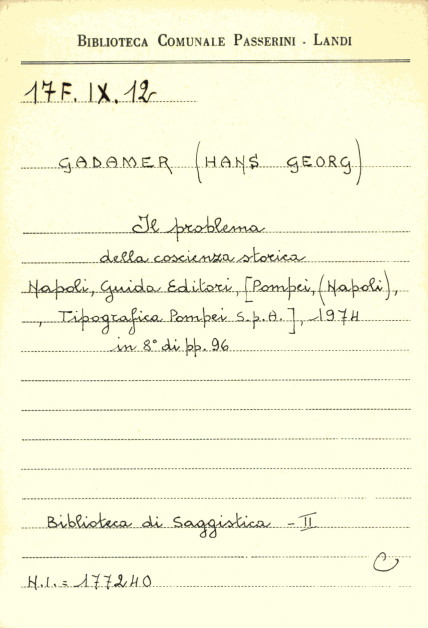 BIBLIOTECA COMUNALE PASSERINI - LANDI
17F. IX. 12
GADAMER (HANS GEORG)
Il problema
della coscienza storica
Napoli, Guida Editori, [Pompei, (Napoli),
, Tipografica Pompei S.p.A.], 1974
in 8° di pp. 96
Biblioteca di Saggistica - II
C
N.I. = 177240